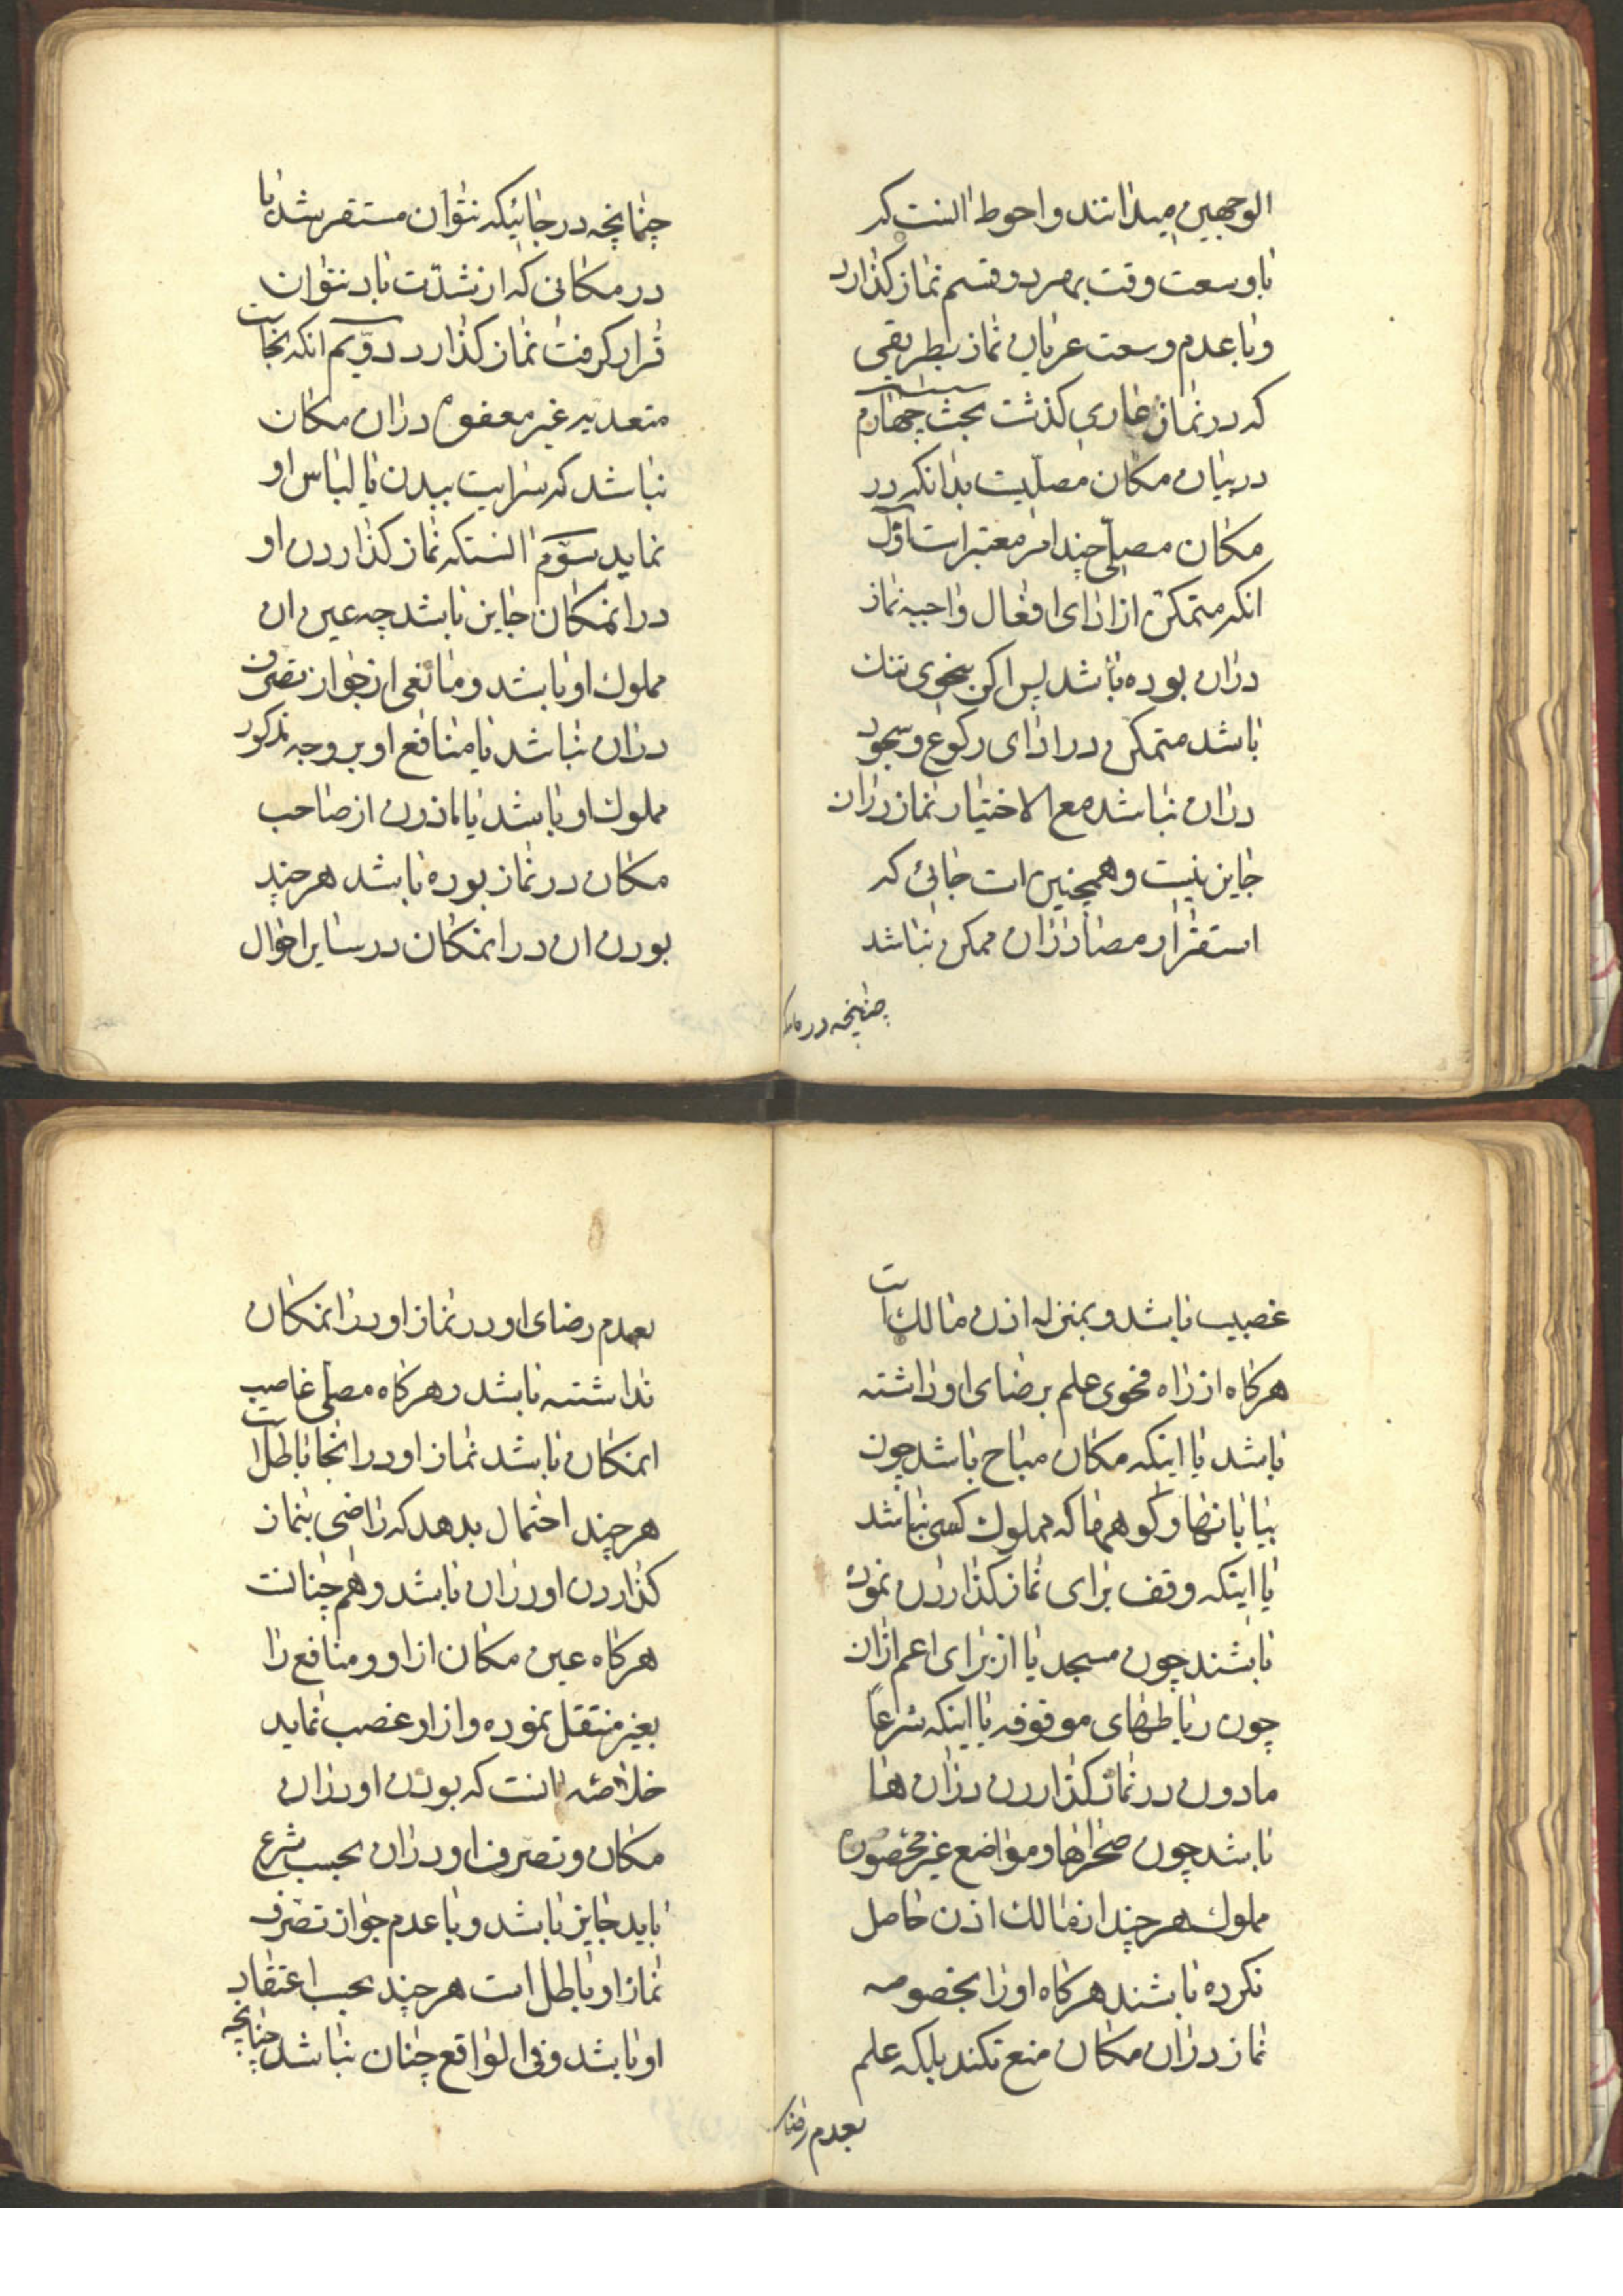 الوجهین میدانند و احوط انست که
با وسعت وقت بهر دو قسم نماز کذارد
و با عدم وسعت عریان نماز بطریقی
که در نماز عاری کذشت بحث چهارم
در بیان مکان مصلیت بدانکه در
مکان مصلی چند امر معتبر است اوّل
انکه متمکن از ادای افعال واجبه نماز
در ان بوده باشد پس اکر بنحوی تنک
باشد متمکن در ادای رکوع و سجود
در ان نباشد مع الاختیار نماز در ان
جایز نیست و همچنین است جائی که
استقرار مصلی در ان ممکن نباشد
چنانچه در جائیکه
چنانچه در جائیکه نتوان مستقر شد یا
در مکانی که از شدّت باد نتوان
قرار کرفت نماز کذارد دویّم انکه نجاست
متعدیه غیر معفو در ان مکان
نباشد که سرایت ببدن یا لباس او
نماید سوّم انستکه نماز کذاردن او
در انمکان جایز باشد چه عین ان
مملوک او باشد و مانعی از جواز تصرف
در ان نباشد یا منافع او بر وجه مذکور
مملوک او باشد یا ماذون از صاحب
مکان در نماز بوده باشد هر چند
بودن ان در انمکان در سایر احوال
غصبیت باشد و بمنزله اذن مالک است
هرکاه از راه فحوی علم برضای او داشته
باشد یا اینکه مکان مباح باشد چون
بیابانها و کوهها که مملوک کسی نباشد
یا اینکه وقف برای نماز کذاردن نموده
باشند چون مسجد یا از برای اعم از ان
چون رباطهای موقوفه یا اینکه شرعاً
ماذون در نماز کذاردن در ان ها
باشد چون صحراها و مواضع غیر محصوره
مملوک هر چند از مالک اذن حاصل
نکرده باشند هرکاه او را بخصوصه
نماز در ان مکان منع نکند بلکه علم
بعدم رضای
بعدم رضای او در نماز او در انمکان
نداشته باشد و هرکاه مصلی غاصب
انمکان باشد نماز او در انجا باطل است
هر چند احتمال بدهد که راضی بنماز
کذاردن او در ان باشد و هم چنانست
هرکاه عین مکان از او و منافع را
بغیر منتقل نموده و از او غصب نماید
خلاصه انست که بودن او در ان
مکان و تصرف او در ان بحسب شرع
باید جایز باشد و با عدم جواز تصرف
نماز او باطل است هر چند بحسب اعتقاد
او باشد و فی الواقع چنان نباشد چنانچه